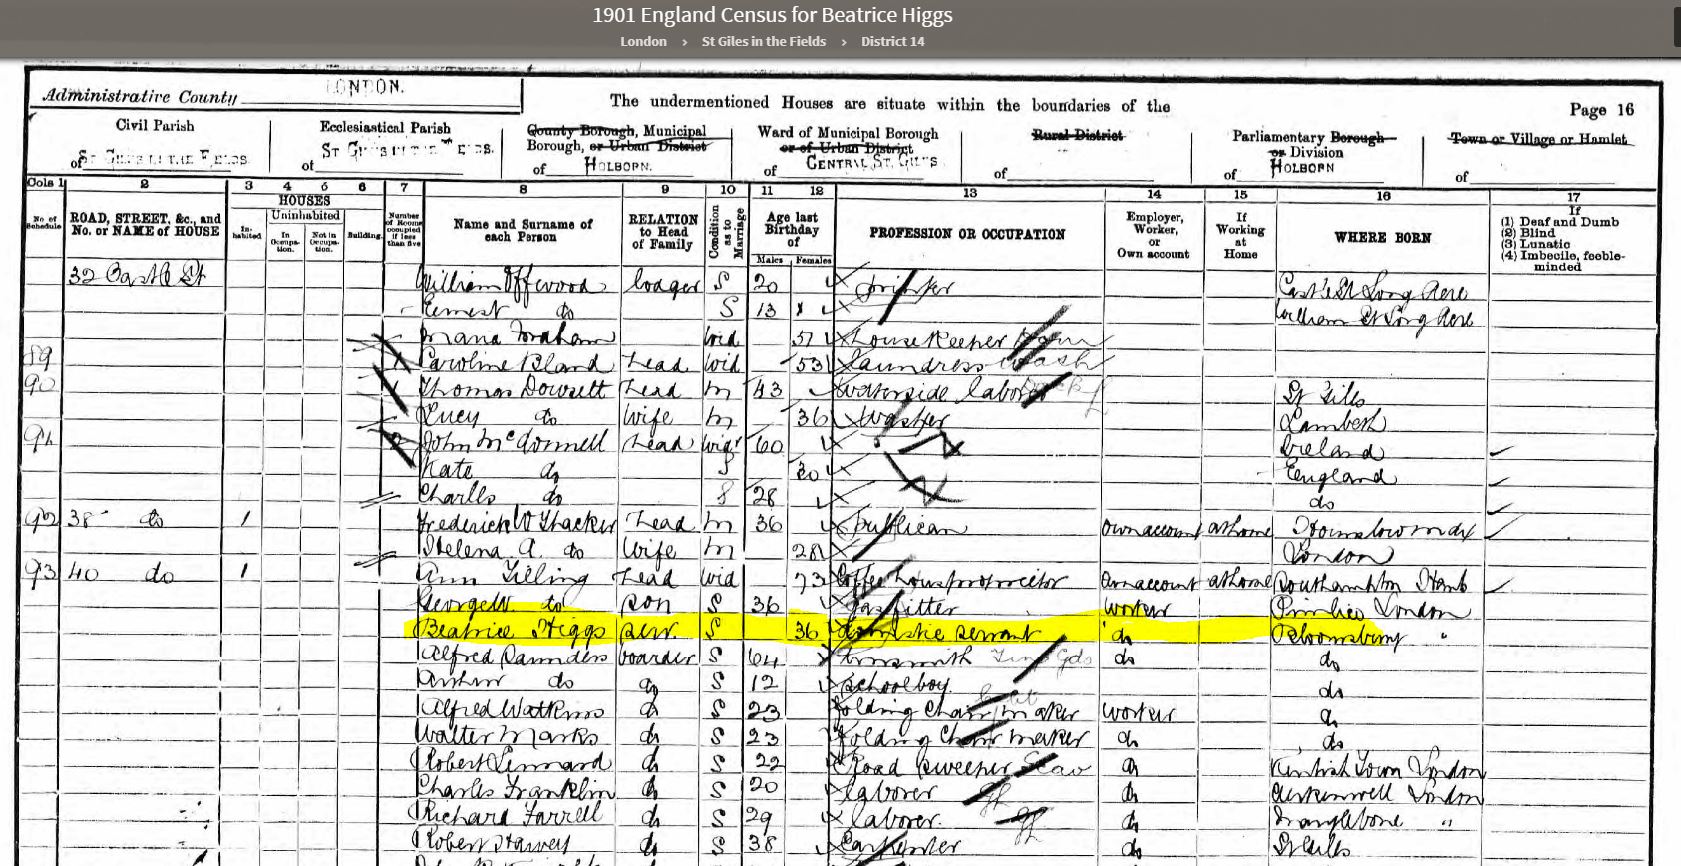 1901 England Census for Beatrice Higgs
London › St Giles in the Fields › District 14
Administrative County LONDON.
The undermentioned Houses are situate within the boundaries of the
Page 16
Civil Parish of St Giles in the Fields.
Ecclesiastical Parish of St Giles in the Fields.
County Borough, Municipal Borough, or Urban District of Holborn.
Ward of Municipal Borough or of Urban District of Central St. Giles
Rural District of
Parliamentary Borough or Division of Holborn
Town or Village or Hamlet of
Cols 1 2 3 4 5 6 7 8 9 10 11 12 13 14 15 16 17
No of Schedule
ROAD, STREET, &c., and No. or NAME of HOUSE
HOUSES
Inhabited
Uninhabited
In Occupation.
Not in Occupation.
Building.
Number of Rooms occupied if less than five
Name and Surname of each Person
RELATION to Head of Family
Condition as to Marriage
Age last Birthday of
Males Females
PROFESSION OR OCCUPATION
Employer, Worker, or Own account
If Working at Home
WHERE BORN
If
(1) Deaf and Dumb
(2) Blind
(3) Lunatic
(4) Imbecile, feeble-minded
32 Castle St William Offwood lodger S 20 printer Castle St Long Acre
Ernest do S 13 William St Long Acre
Wid 57 Housekeeper
89 Caroline Bland Head Wid 53 Laundress Wash
90 Thomas Dowsett Head m 43 waterside laborer St Giles
Lucy do Wife m 36 Washer Lambeth
91 John McDonnell Head Widr 60 Ireland
Kate do S 30 England
Charles do S 28 do
92 38 do 1 Frederick W Thacker Head m 36 publican own account at home Hounslow mdx
Helena A. do Wife m 28 London
93 40 do 1 Ann Tilling Head Wid 73 Coffee house proprietor own account at home Southampton Hants
George W. do son S 36 gas fitter worker Pimlico London
Beatrice Higgs serv. S 36 domestic servant do Bloomsbury "
Alfred Saunders boarder S 64 tinsmith do do
Arthur do do S 12 schoolboy do
Alfred Watkins do S 23 folding chair maker worker do
Walter Marks do S 23 folding chair maker do do
Robert Lennard do S 22 Road sweeper Scav do Kentish Town London
Charles Franklin do S 20 laborer do Clerkenwell London
Richard Farrell do S 29 laborer. do Marylebone "
Robert Harvey do S 38 carpenter do St Giles